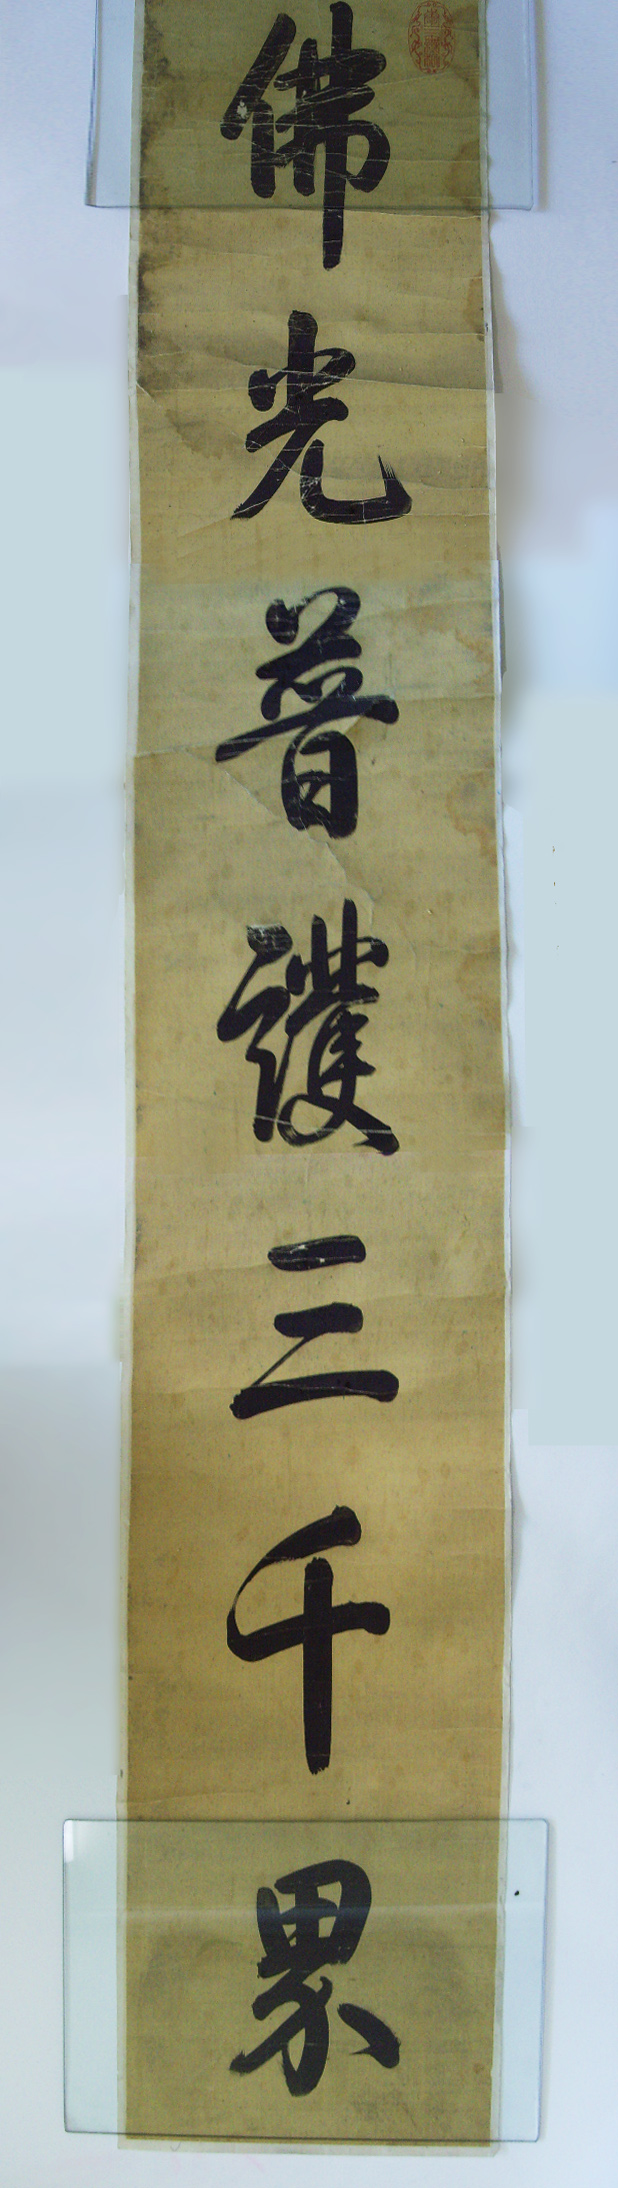 佛光普護三千界